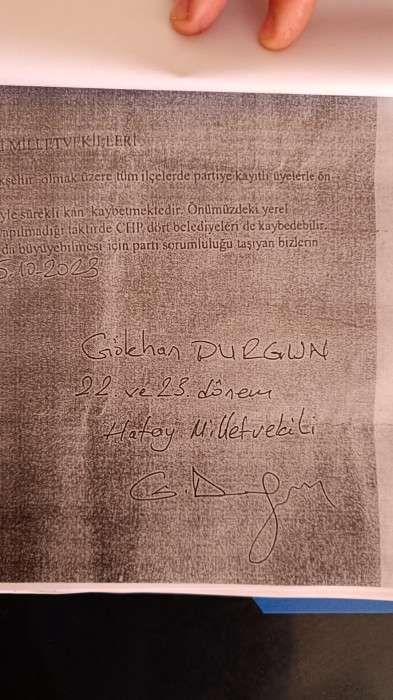 MİLLETVEKİLLERİ
olmak üzere tüm ilçelerde partiye kayıtlı üyelerle ön
sürekli kan kaybetmektedir. Önümüzdeki yerel
yapılmadığı taktirde CHP dört belediyeleri de kaybedebilir.
da büyüyebilmesi için parti sorumluluğu taşıyan bizlerin
10-2023
Gökhan DURGUN
22. ve 23. dönem
Hatay Milletvekili